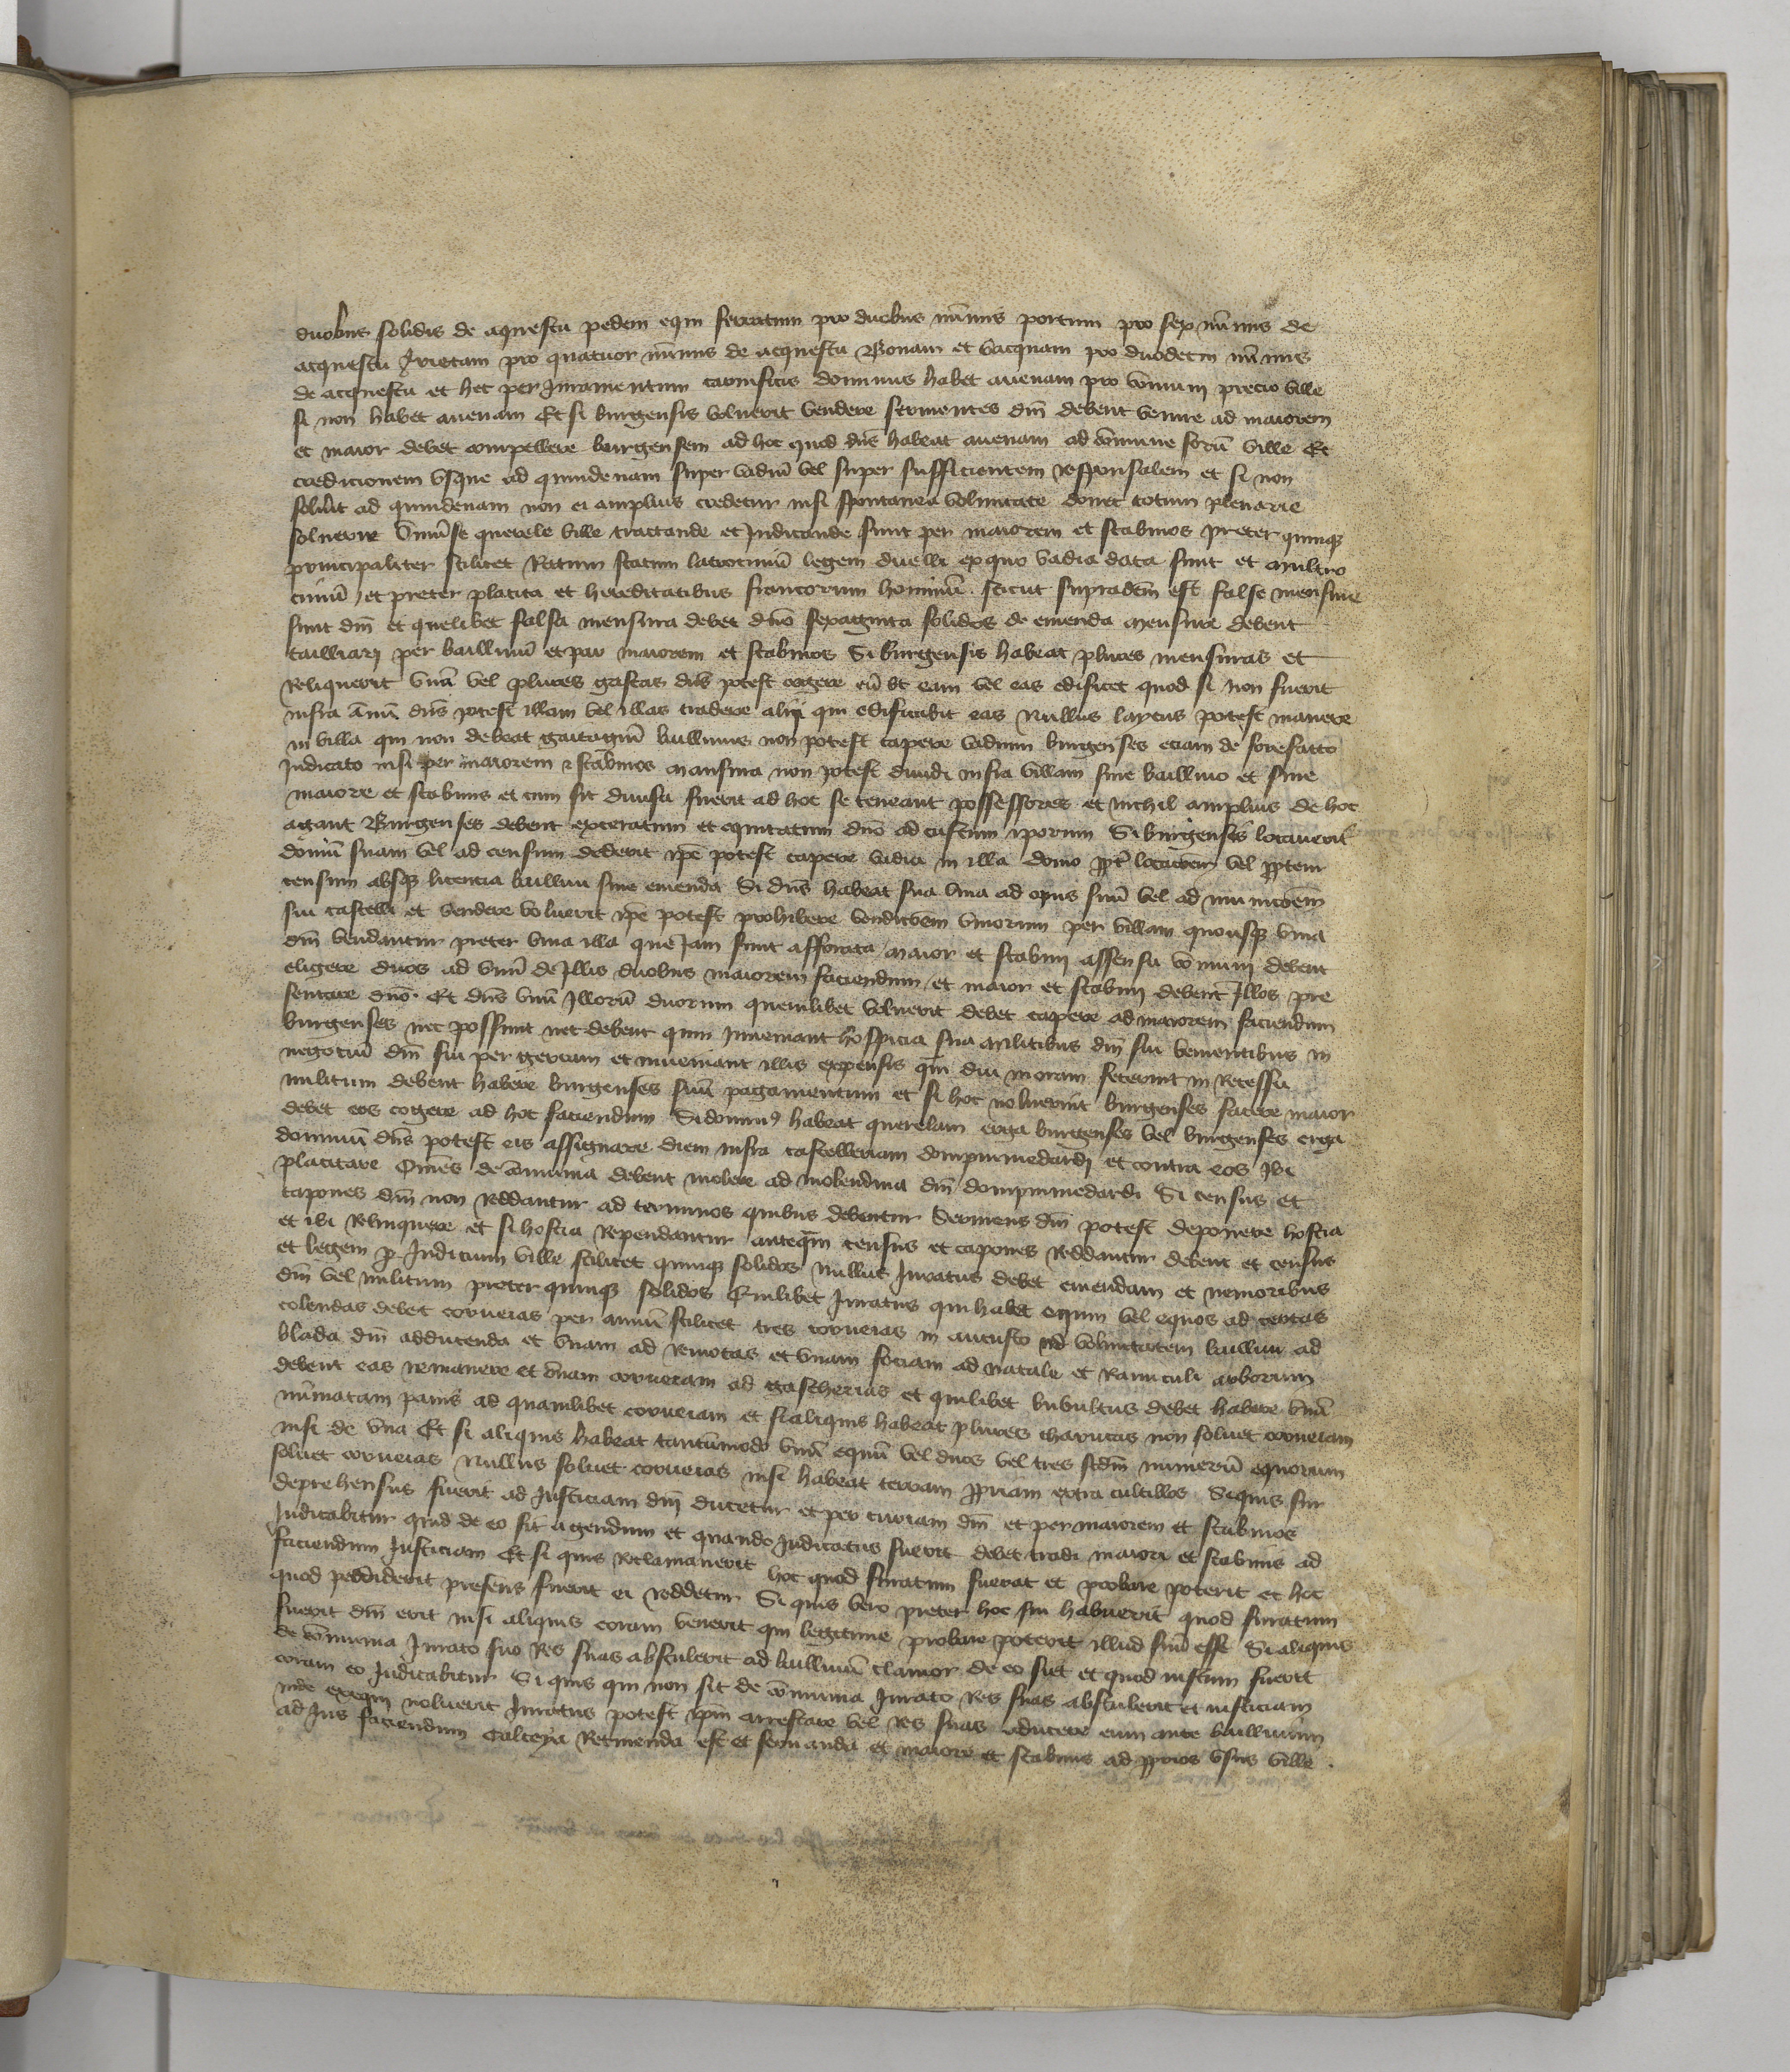 duobus solidis de aquestu pedem equi ferratum pro duobus nũmis portum pro sex nũmis de
acquestu Jvietam pro quatuor nũmis de acquestu Bonam et vacquam pro duodecim nũmis
de acquestu et hec per Juramentum carnificis dominus habet auenam pro cõmuni precio ville
si non habet auenam Et si burgensis voluerit vendere seruientes dnĩ debent venire ad maiorem
et maior debet compellere burgensem ad hoc quod dnš habeat auenam ad cõmune forũ ville Et
credicionem vsque ad quindenam super vadiũ vel super sufficientem responsalem et si non
soluit ad quindenam non ei amplius credetur nisi spontanea voluntate donec totum plenarie
soluerit Vniũse querele ville tractande et Judicande sunt per maiorem et scabinos preter quinqȝ
principaliter scilicet Raptum scatum latrociniũ legem duelli ex quo vadia data sunt et multro
ciniũ et preter placita et hereditatibus francorum hominũ sicut supradcm̃ est false mensure
sunt dnĩ et quelibet falsa mensura debet dnõ sexaginta solidos de emenda mensure debent
tailliarj per bailliuũ et par maiorem et scabinos Si burgensis habeat plures mensuras et
Reliquerit vnã vel plures gastas dnš potest cogere eũ vt eam vel eas edificet quod si non fuerit
infra ãnũ dnš potest illam vel illas tradere alij qui edificabit eas Nullus laycus potest manere
in villa qui non debeat gaitagiũ bailliuus non potest capere vadium burgenses etiam de forefacto
Judicato nisi per maiorem et scabinos mansura non potest diuidi infra villam sine bailliuo et sine
maiore et scabinis et cum sic diuisa fuerit ad hoc se teneant possessores et nichil amplius de hoc
agant Burgenses debent exceratum et equitatum dnõ ad custum iporum Si burgensis locauerit
domũ suam vel ad censum dederit ipẽ potest capere vadia in illa domo ppt̃ locacõem vel ppter
censum absqȝ licencia bailliui sine emenda Si dnš habeat sua vina ad opus suũ vel ad municõem
sui castelli et vendere voluerit ipẽ potest prohibere vendicõem vinorum per villam quousqȝ vina
dnĩ vendantur preter vina illa que Jam sunt afforata maior et scabinj assensu cõmunj debent
eligere duos ad vnũ de Jllis duobus maiorem faciendum et maior et scabinj debent Jllos pre
sentare dnõ Et dnš vnũ Jllorũ duorum quemlibet voluerit debet capere ad maiorem faciendum
burgenses nec possunt nec debent quin Jnueniant hospicia sua militibus dnĩ sui venientibus in
negociũ dnĩ sui per gerram et inueniant illis expensis qm̃ diu moram fecerint in Recessu
militum debent habere burgenses suũ pagamentum et si hoc noluerint burgenses facere maior
debet eos cogere ad hoc faciendum Si dominus habeat querelam erga burgenses vel burgenses erga
dominũ dnš potest eis assignare diem infra castelleriam dompnimedardj et contra eos ibi
placitare Om̃es de cõmunia debent molere ad molendina dnĩ dompnimedardi Si census et
capones dnĩ non Reddantur ad terminos quibus debentur Seruiens dnĩ potest deponere hostia
et ibi Relinquere et si hostia Rependantur anteqm̃ census et capones Reddantur debent et census
et legem p Judicium ville scilicet quinqȝ solidos Nullus Juratus debet emendam et nemoribus
dnĩ vel militum preter quinqȝ solidos Quilibet Juratus qui habet equum vel equos ad terras
colendas debet corueias per annũ scilicet tres corueias in augusto ad voluntatem bailliui ad
blada dnĩ adducenda et vnam ad Remotas et vnam sociam ad Natale et Ramiculi arborum
debent eas Remanere et vnam corueiam ad gascherias et quilibet bubulcus debet habere vnã
nũmatam panis ad quamlibet corueiam et si aliquis habeat plures charrucas non soluet corueiam
nisi de vna Et si aliquis habeat tantũmodo vnũ equũ vel duos vel tres scdm̃ numerũ equorum
soluet corueias Nullus soluet corueias nisi habeat terram ppriam extra cultillos Siquis fur
deprehensus fuerit ad Justiciam dnĩ ducetur et per curiam dnĩ et per maiorem et scabinos
Judicabitur quid de eo sit agendum et quando Judicatus fuerit debet tradi maiori et scabinis ad
faciendum Justiciam Et si quis Reclamauerit hoc quod furatum fuerat et probare poterit et hoc
quod perdiderit presens fuerit ei Reddetur Si quis vero preter hoc fur habuerit quod furatum
fuerit dnĩ erit nisi aliquis coram venerit qui legitime probare poterit illud suũ esse Si aliquis
de cõmunia Jurato suo Res suas abstulerit ad bailliuũ clamor de eo fiet et quod iustum fuerit
coram eo Judicabitur Si quis qui non sit de cõmunia Jurato Res suas abstulerit et iusticiam
inde exequi noluerit Juratus potest ipm̃ arrestare vel Res suas educere eum ante bailliuum
ad Jus faciendum Calceya Retinenda est et seruanda et maiore et scabinis ad pprios vsus ville.